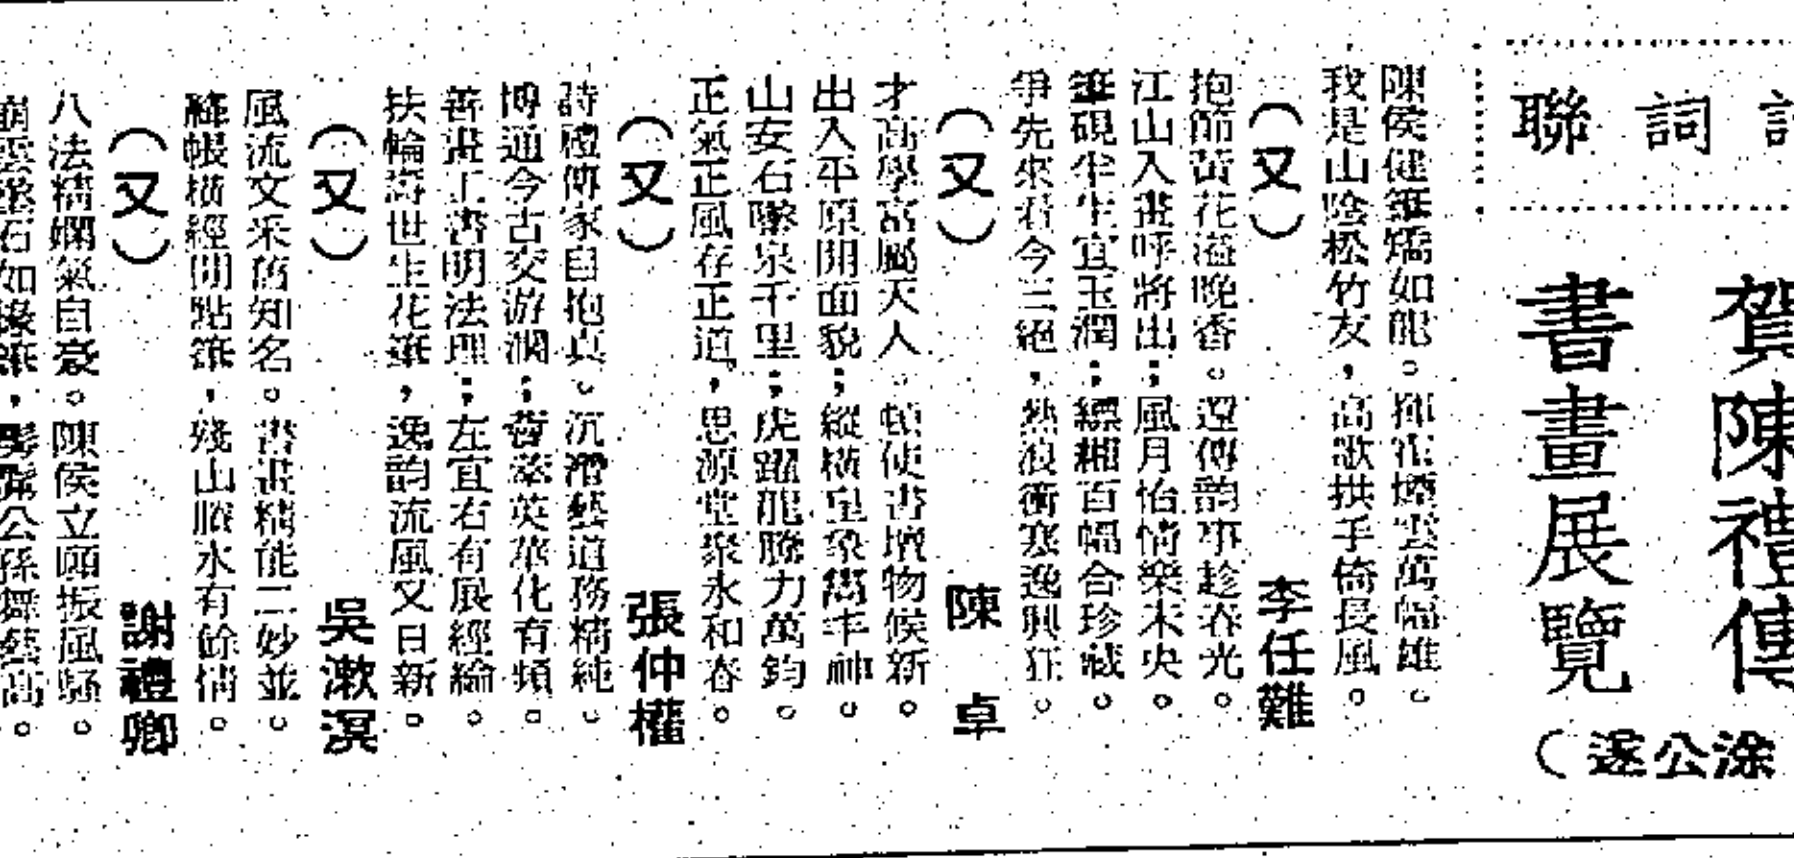 詞聯
賀陳禮傳
書畫展覽
(涂公遂
陳侯健筆矯如龍。揮洒煙雲萬幅雄。
我是山陰松竹友,高歌拱手倚長風。
(又)李任難
抱節黃花溢晚香。還傳韵事趁春光。
江山入畫呼將出;風月怡情樂未央。
筆硯半生宜玉潤;縹緗百幅合珍藏。
爭先來看今三絕,熱浪衝寒逸興狂。
(又)陳卓
才高學富屬天人。頓使書壇物候新。
出入平原開面貌;縱橫皇象舊丰神。
山安石墜泉千里;虎躍龍騰力萬鈞。
正氣正風存正道,思源堂聚永和春。
(又)張仲權
詩禮傳家自抱真。沉潛藝道務精純。
博通今古交游濶;薈萃英華化有頻。
善畫工書明法理;左宜右有展經綸。
扶輪濤世生花筆,逸韵流風又日新。
(又)吳漱溟
風流文采舊知名。書畫精能二妙並。
絳帳橫經閒點筆,殘山賸水有餘情。
(又)謝禮卿
八法精嫻氣自豪。陳侯立願振風騷。
崩雲墜石如椽筆,髣髴公孫舞藝高。